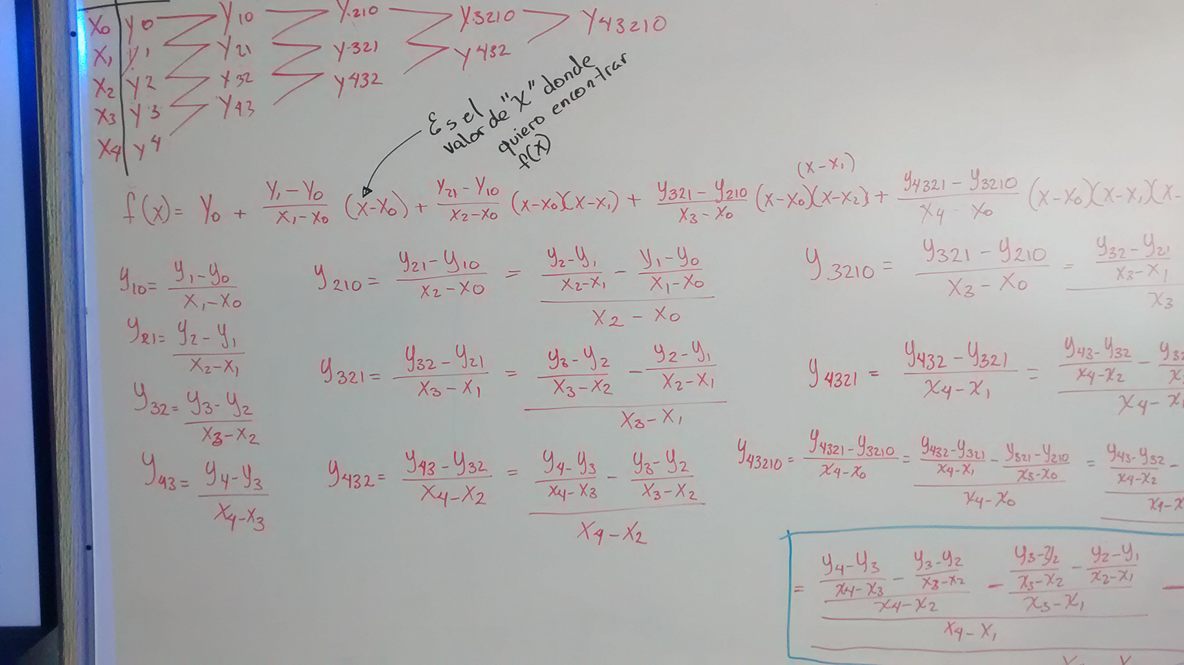 x0 y0 y10 y210 y3210 y43210
x1 y1 y21 y321 y432
x2 y2 y32 y432
x3 y3 y43
x4 y4
Es el
valor de "X" donde
quiero encontrar
f(x)
(x-x1)
f(x) = y0 + (y1-y0)/(x1-x0) (x-x0) + (y21-y10)/(x2-x0) (x-x0)(x-x1) + (y321-y210)/(x3-x0) (x-x0)(x-x2) + (y4321-y3210)/(x4-x0) (x-x0)(x-x1)(x-
y10 = (y1-y0)/(x1-x0)
y21 = (y2-y1)/(x2-x1)
y32 = (y3-y2)/(x3-x2)
y43 = (y4-y3)/(x4-x3)
y210 = (y21-y10)/(x2-x0) = ((y2-y1)/(x2-x1) - (y1-y0)/(x1-x0))/(x2-x0)
y321 = (y32-y21)/(x3-x1) = ((y3-y2)/(x3-x2) - (y2-y1)/(x2-x1))/(x3-x1)
y432 = (y43-y32)/(x4-x2) = ((y4-y3)/(x4-x3) - (y3-y2)/(x3-x2))/(x4-x2)
y3210 = (y321-y210)/(x3-x0) = ((y32-y21)/(x3-x1)/x3
y4321 = (y432-y321)/(x4-x1) = ((y43-y32)/(x4-x2) - y32/x3)/(x4-x
y43210 = (y4321-y3210)/(x4-x0) = ((y432-y321)/(x4-x1) - (y321-y210)/(x3-x0))/(x4-x0) = ((y43-y32)/(x4-x2) -/(x4-x
= (((y4-y3)/(x4-x3) - (y3-y2)/(x3-x2))/(x4-x2) - ((y3-y2)/(x3-x2) - (y2-y1)/(x2-x1))/(x3-x1))/(x4-x1) -